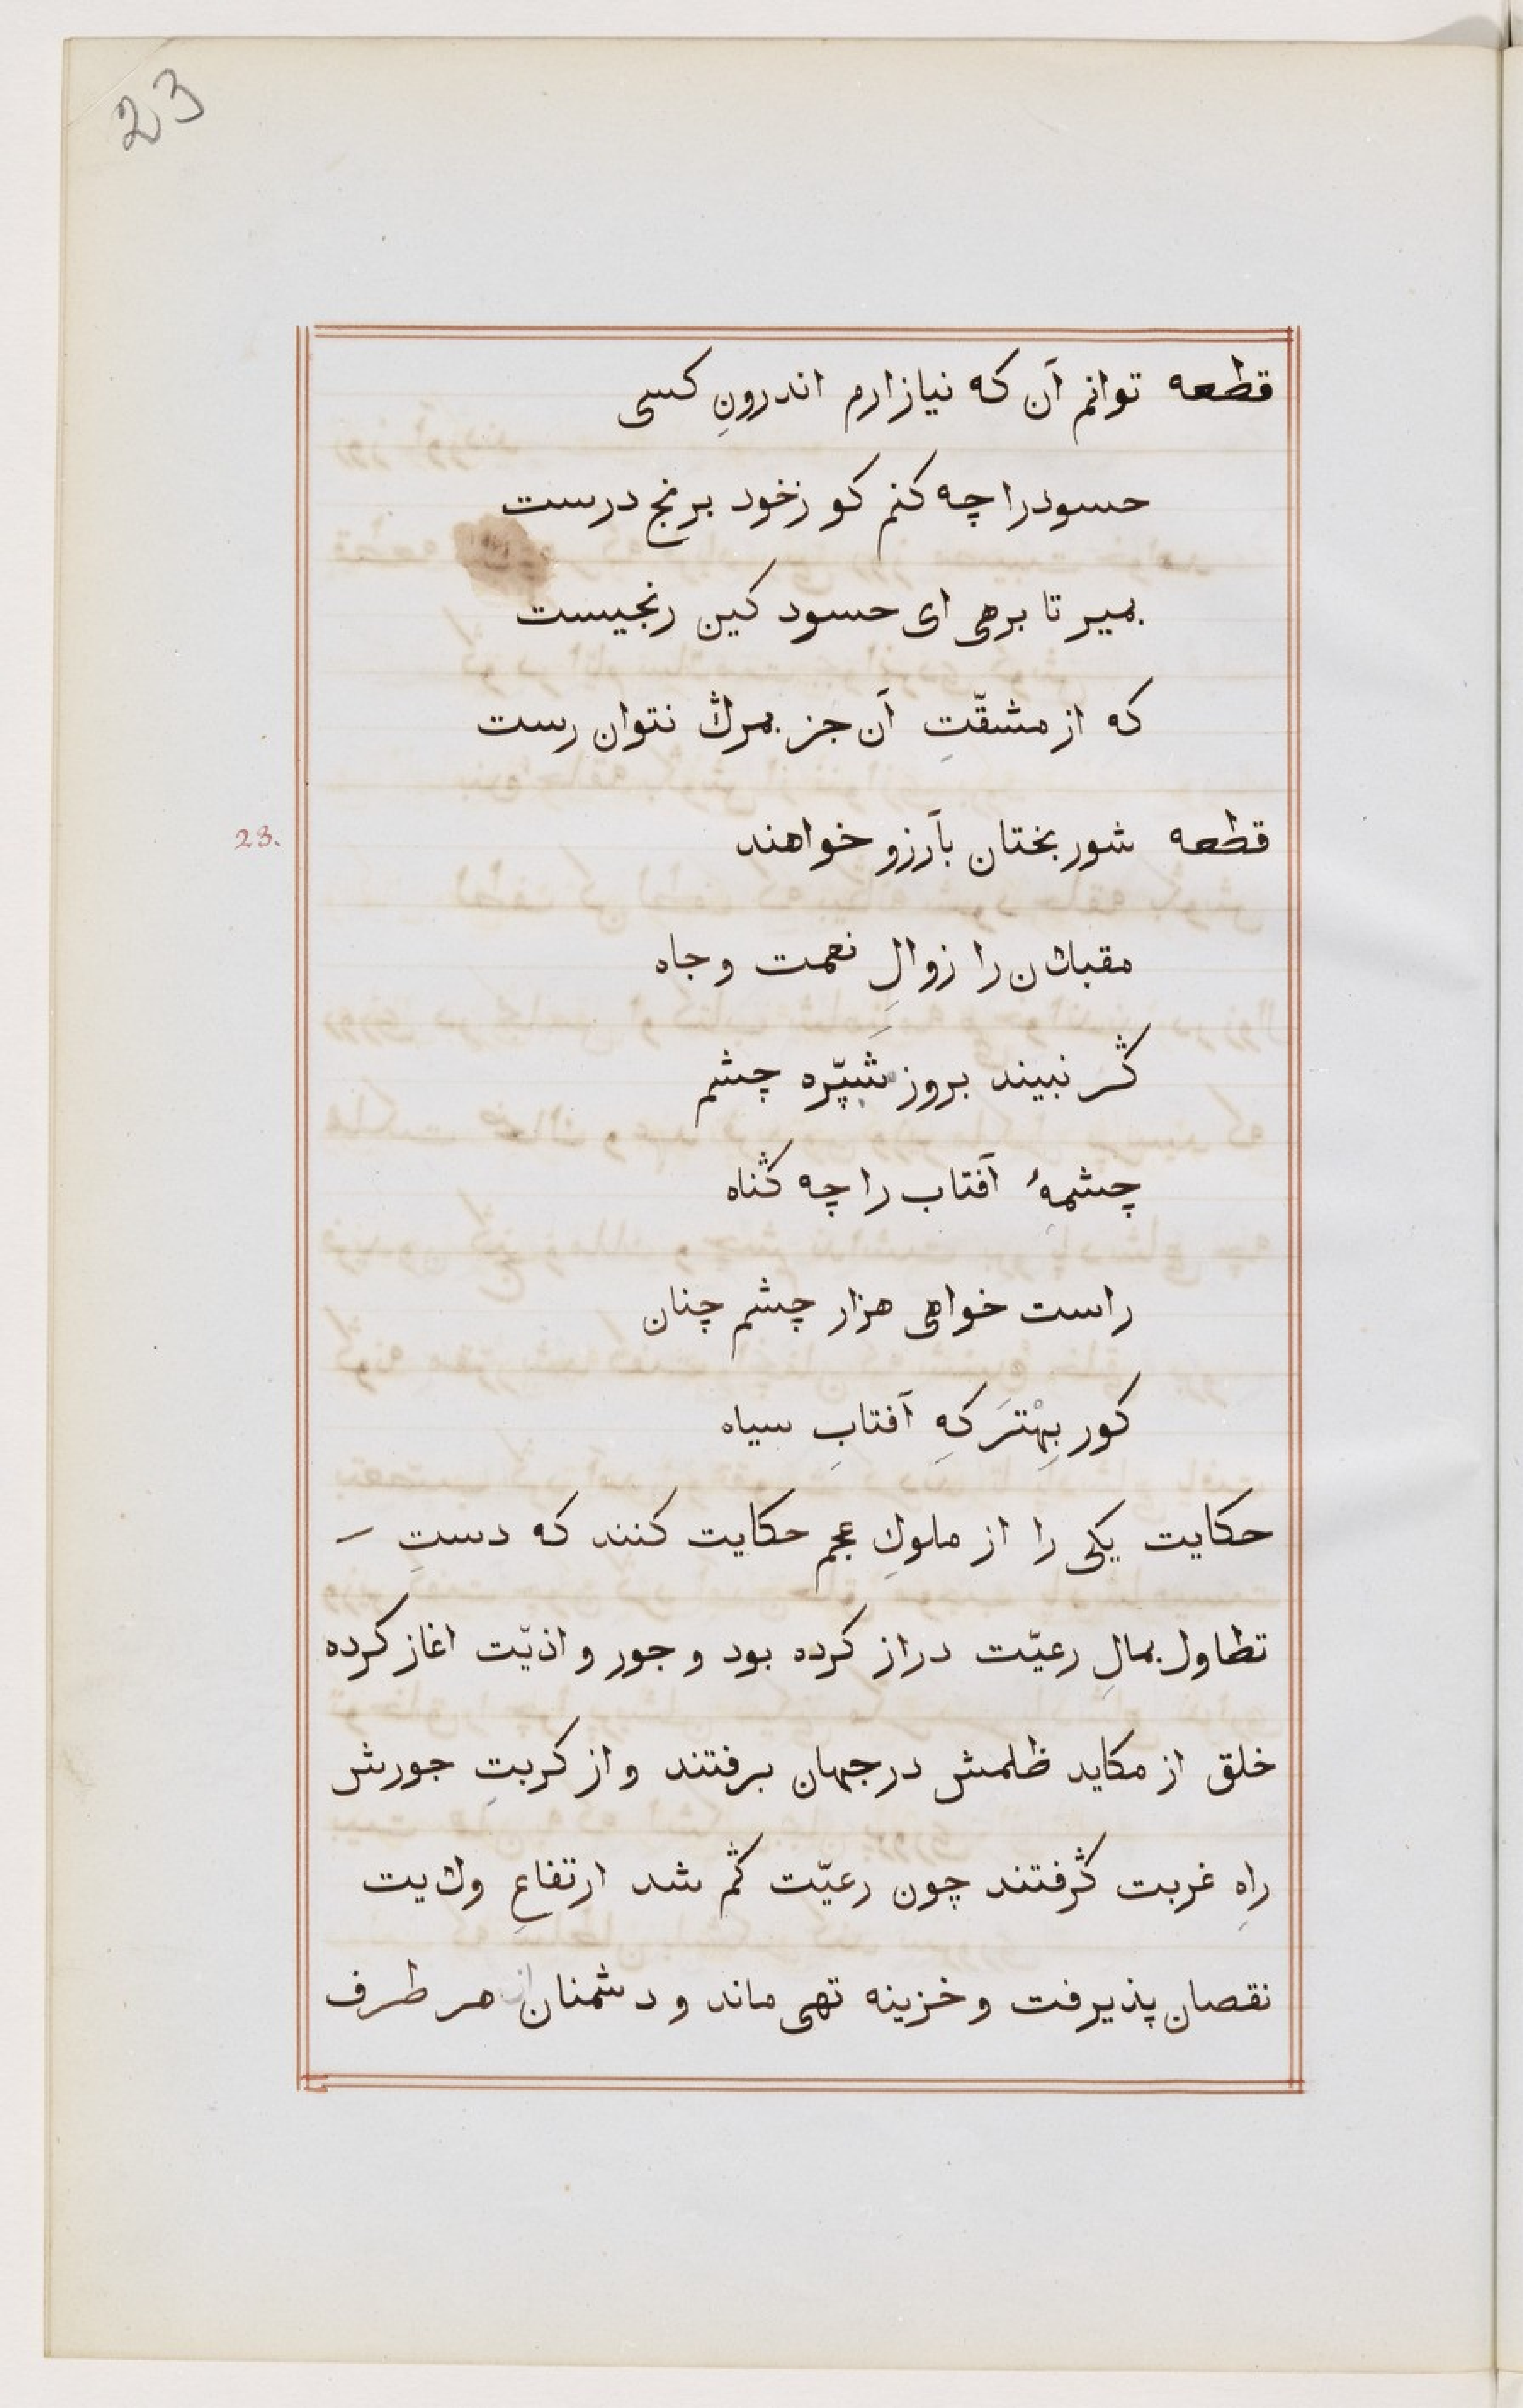 23
قطعه توانم آن که نیازارم اندرونِ کسی
حسودرا چه کنم کو زخود برنج درست
بمیر تا برهی ای حسود کین رنجیست
که از مشقّتِ آن جز بمرگ نتوان رست
23.
قطعه شور بختان بآرزو خواهند
مقبلان را زوالِ نعمت و جاه
گر نبیند بروز شَپّره چشم
چشمهٔ آفتاب را چه گناه
راست خواهی هزار چشم چنان
کور بِهْتَر کهِ آفتابِ سیاه
حکایت یکی را از ملوكِ عجم حکایت کنند که دستِ –
تطاول بمالِ رعیّت دراز کرده بود و جور و اذیّت اغاز کرده
خلق از مکاید ظلمش در جهان برفتند و از کربتِ جورش
راهِ غربت گرفتند چون رعیّت گم شد ارتفاعِ ولایت
نقصان پذیرفت و خزینه تهی ماند و دشمنان از هر طرف